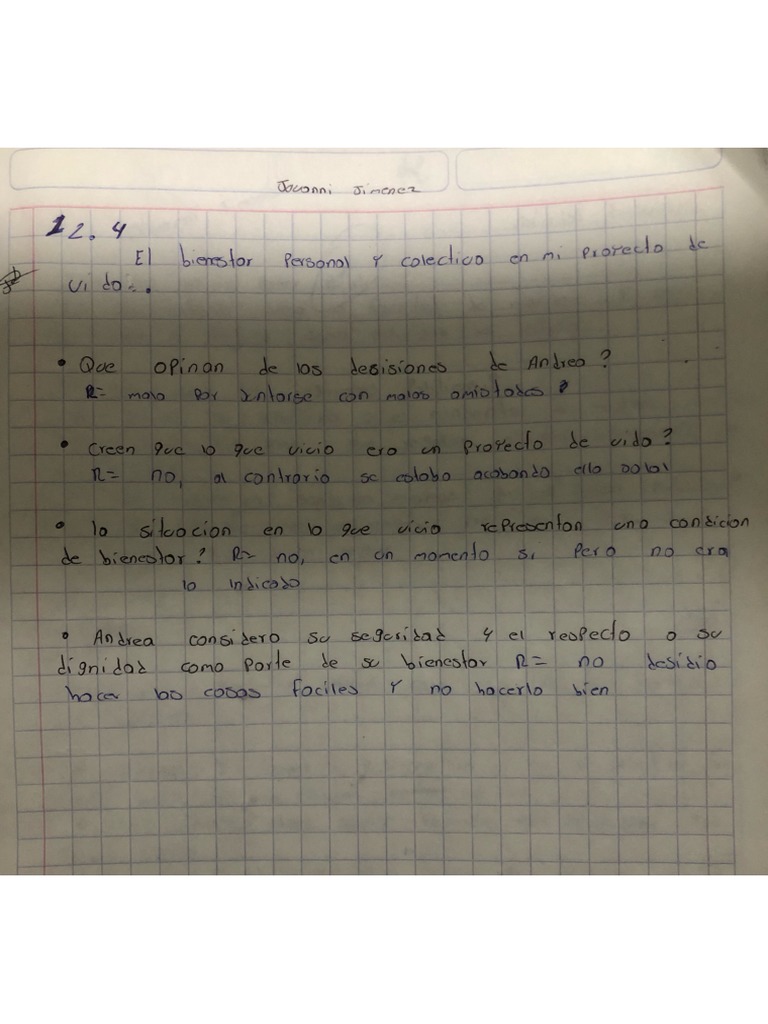 Jovanni Jimenez
12.4
El bienestar Personal y colectivo en mi proyecto de
vida.
• Que opinan de las desisiones de Andrea?
R= mala por juntarse con malas amistades
• Creen que lo que vicio era un proyecto de vida?
R= no, al contrario se estaba acabando ella
• la situacion en lo que vicio representan una condicion
de bienestar? R= no, en un momento si pero no era
lo indicado
• Andrea considero su seguridad y el respecto a su
dignidad como parte de su bienestar R= no desidio
hacer las cosas faciles y no hacerlo bien